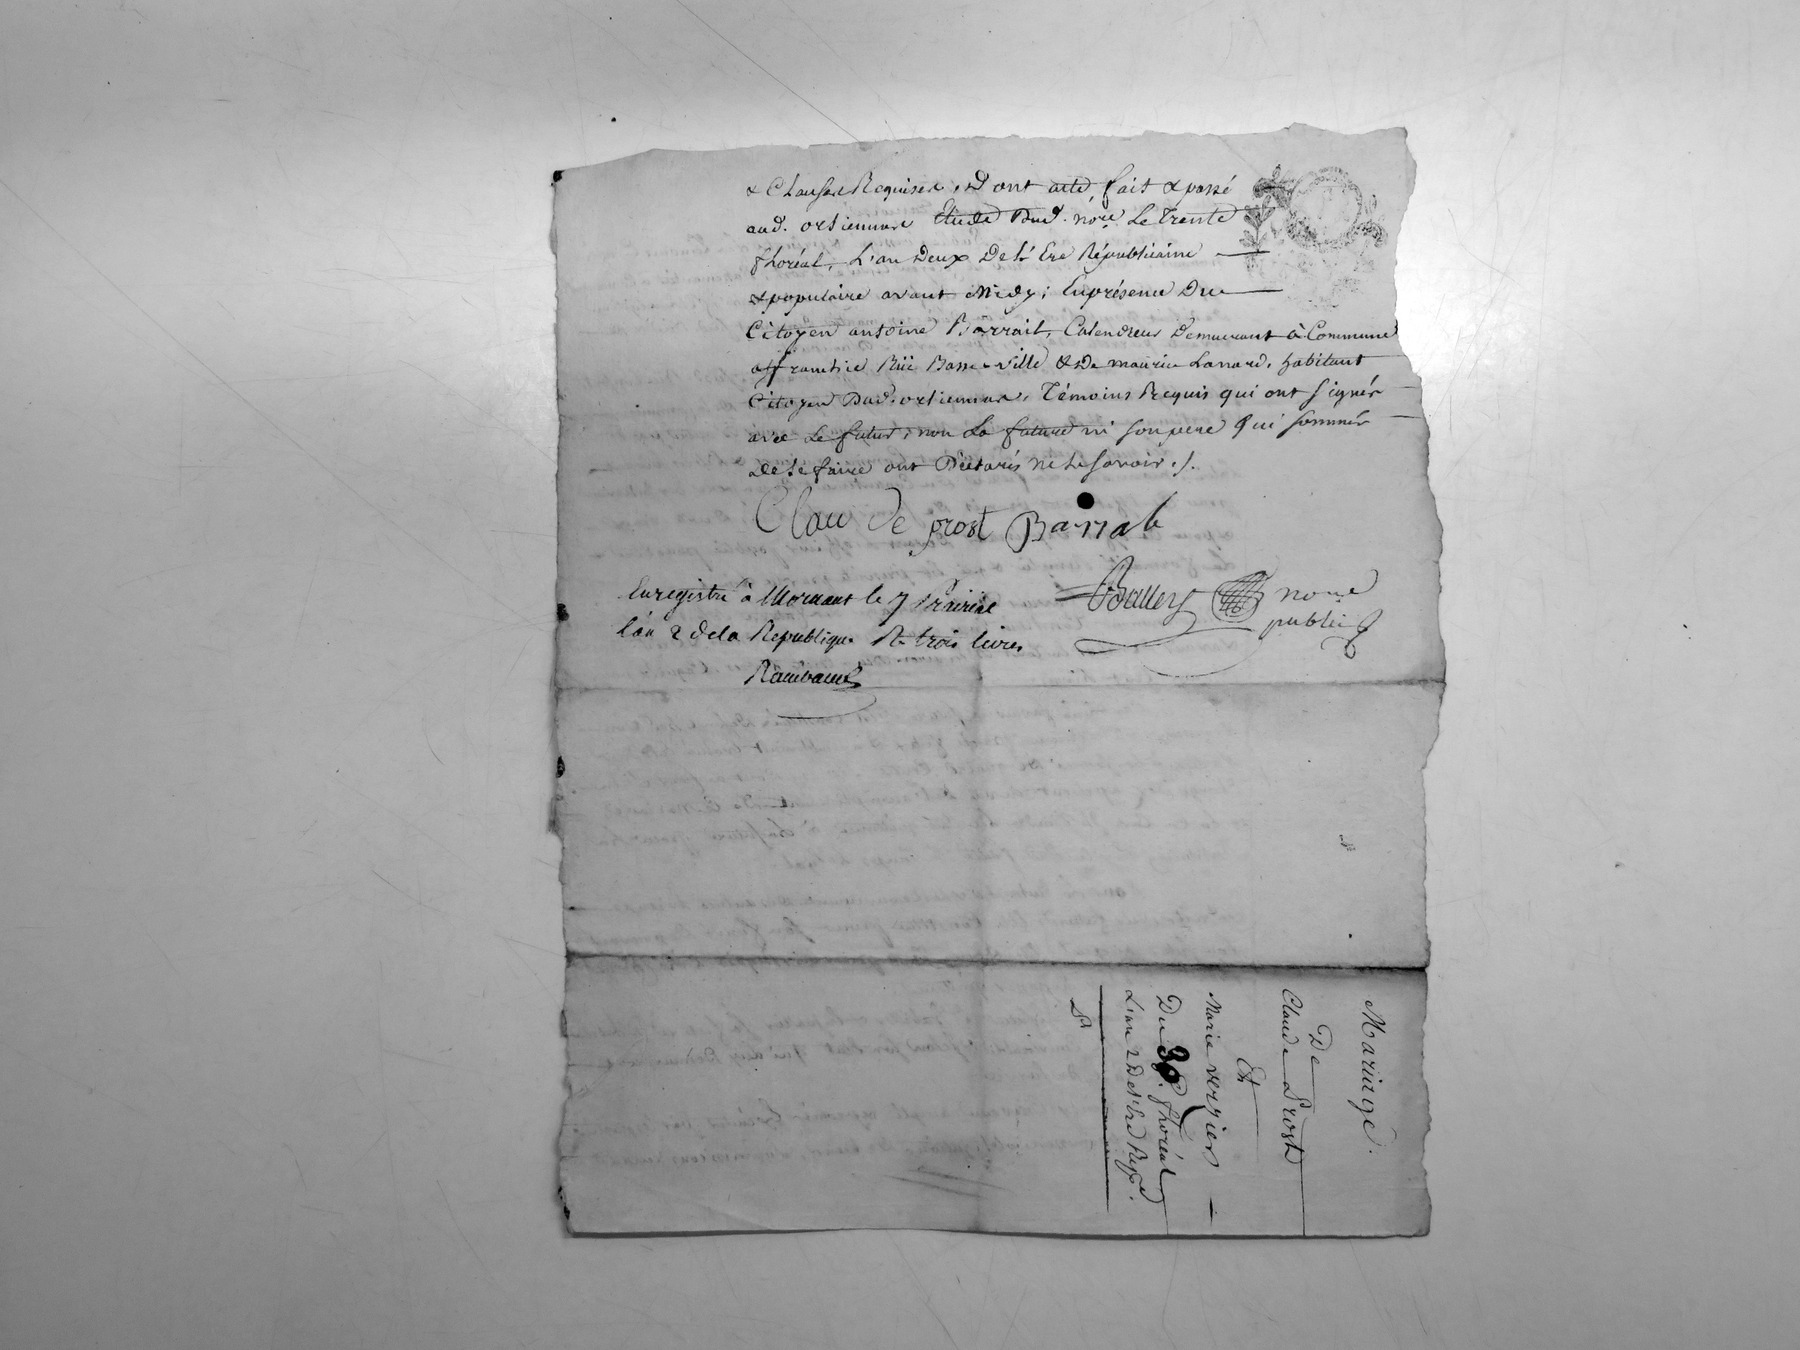 & Clauses Requises, Dont acte fait & passé
aud. orliennas Etude Dud. nore Le Trente
floréal, L'an Deux De L'Ere Républicaine
& populaire avant Midy; En présence Du
Citoyen antoine Barrail, Calendreur Demeurant à Commune
affranchie Rüe Basse-ville & De maurice Lanard, habitant
Citoyen Dud. orliennas, Témoins Requis qui ont signés
avec Le futur, non La future ni son pere Qui sommés
De le faire ont Déclarés ne Le savoir ./.
Clau de prost Barral
Enregistré à Mornant le 7 Prairial
L'an 2 de la Republique R. trois livres
Raimbaud
Balley nore
public
Mariage.
De
Claude Prost
Et
Marie verzier
Du 30. floréal
L'an 2 De L'Ere Repe.